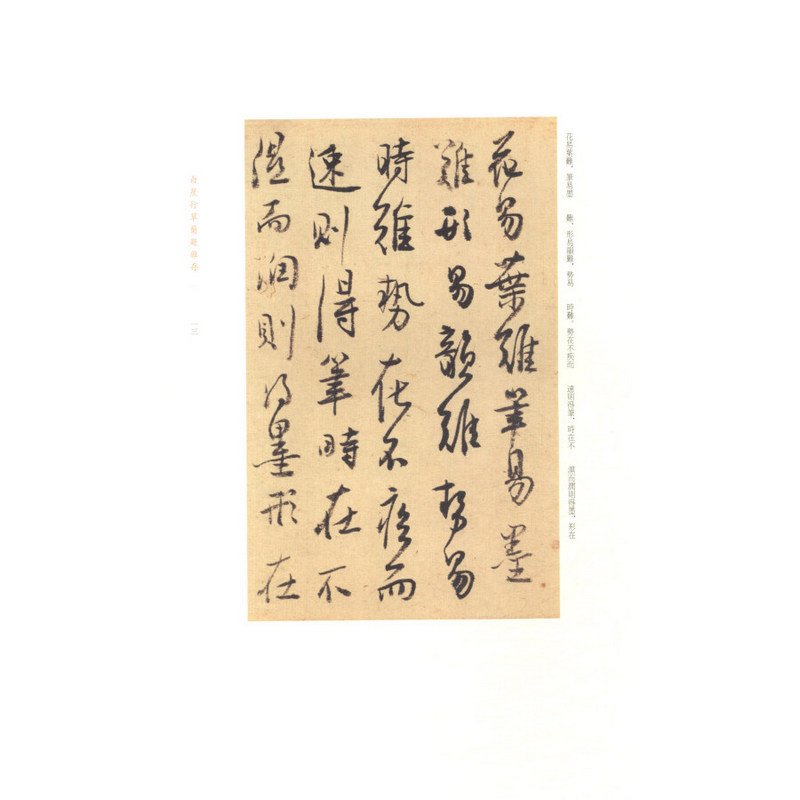 花易葉難筆易墨
難形易韻難勢易
時難勢在不疾而
速則得筆時在不
濕而潤則得墨形在
花易葉難，筆易墨　難，形易韻難，勢易　時難。勢在不疾而　速則得筆，時在不　濕而潤則得墨，形在